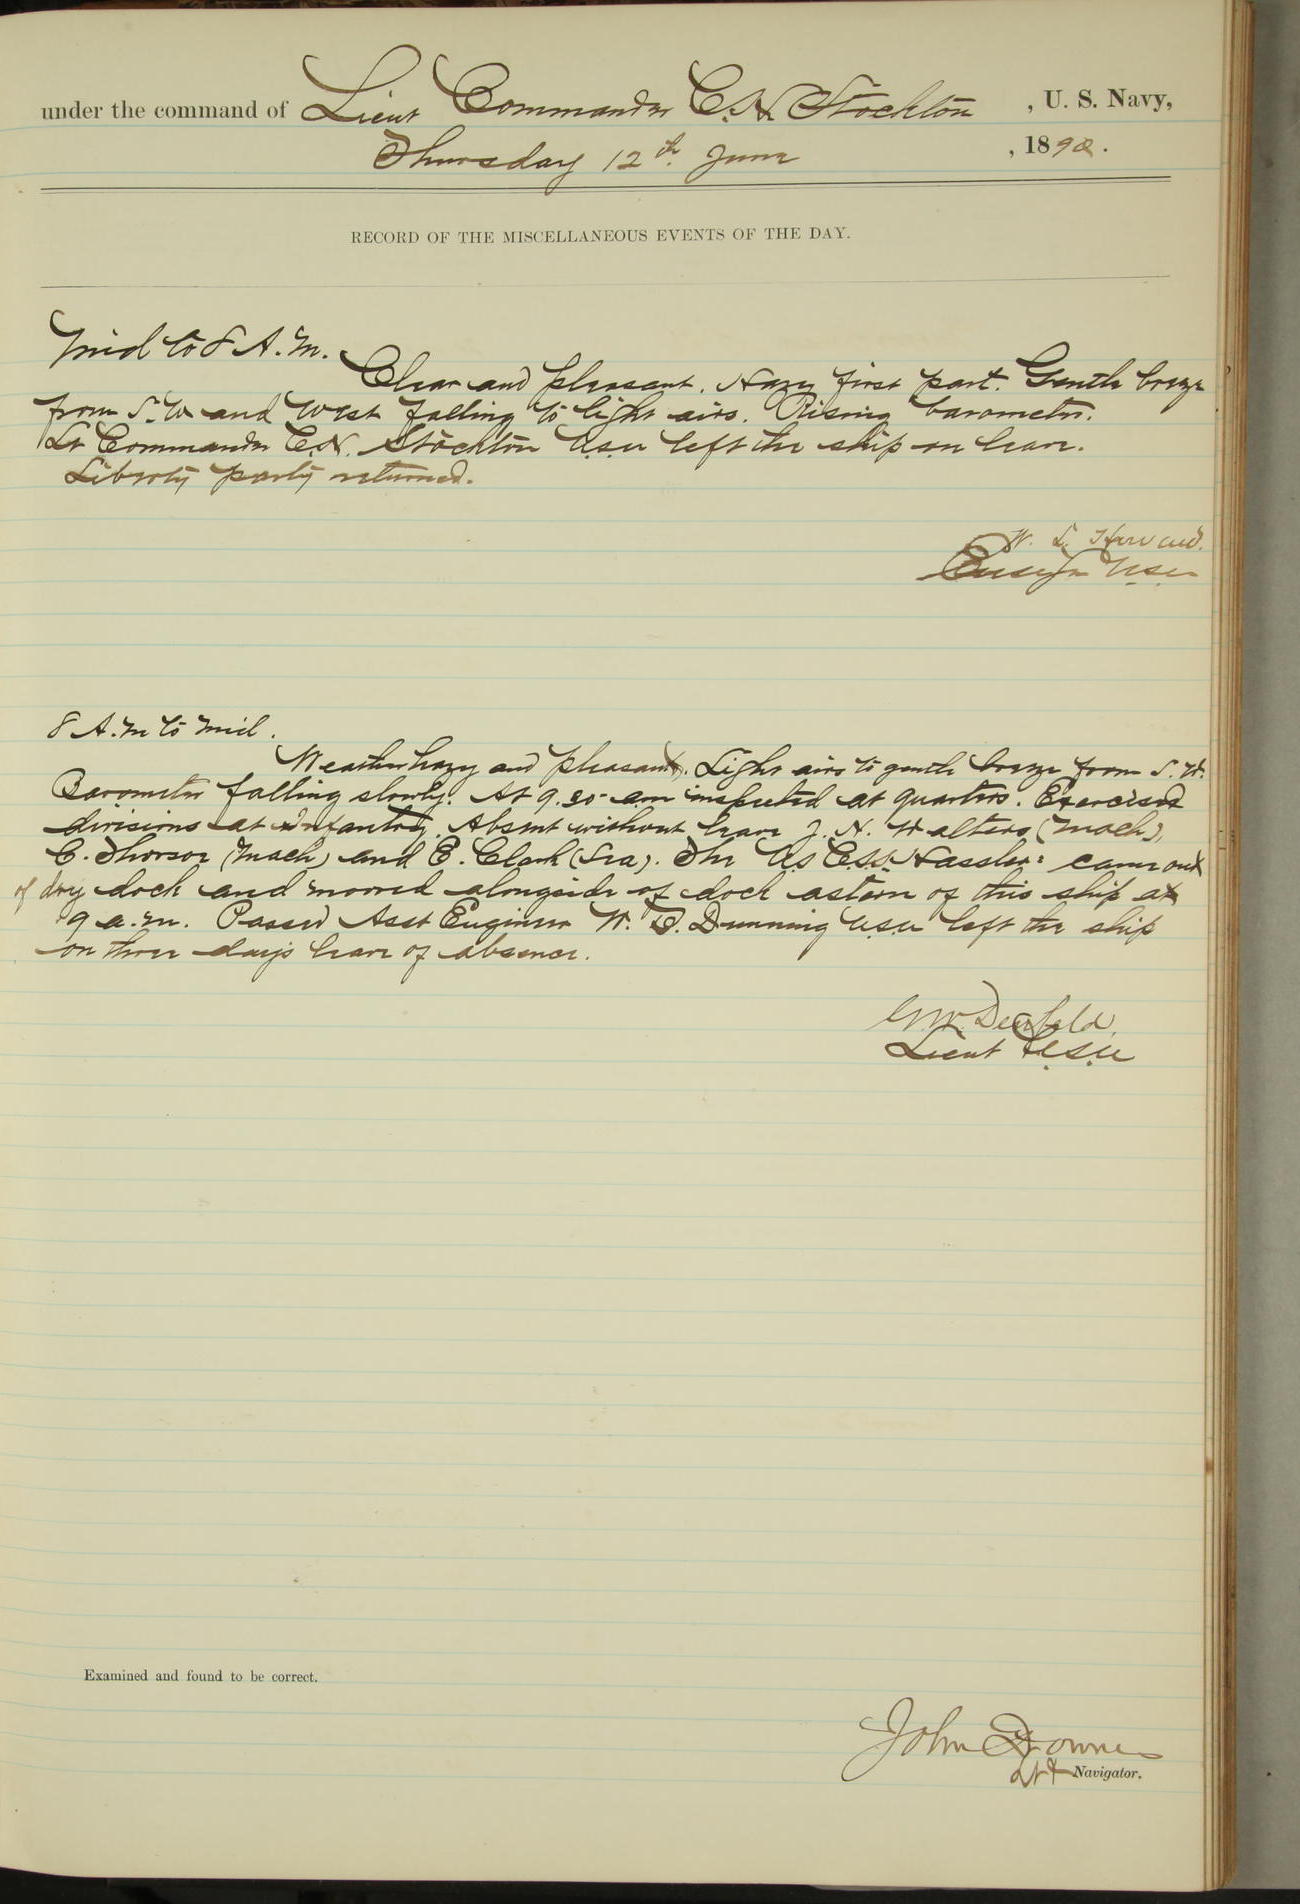 under the command of Lieut Commander C. H. Stockton , U. S. Navy,
Thursday 12th June , 1890.
RECORD OF THE MISCELLANEOUS EVENTS OF THE DAY.
Mid to 8 A.M.
Clear and pleasant. Hazy first part. Gentle breeze
from S.W. and West falling to light airs. Rising barometer.
Lt Commander C.H. Stockton U.S.N. left the ship on leave.
Liberty party returned.
W. L. Howard.
Ensign U.S.N.
8 A.M to Mid.
Weather hazy and pleasant. Light airs to gentle breeze from S.W.
Barometer falling slowly. At 9.20 am inspected at quarters. Exercised
divisions at Infantry. Absent without leave J. N. Walters (Mach),
C. (Mach) and E. Clark (Sea). The U.S.C.S.S. Hassler: came out
of dry dock and moored alongside of dock astern of this ship at
9 a.m. Passed Asst Engineer W. B. Dunning U.S.N left the ship
on three day's leave of absence.
G.W. Denfeld.
Lieut U.S.N
Examined and found to be correct.
John Downes
Lt & Navigator.